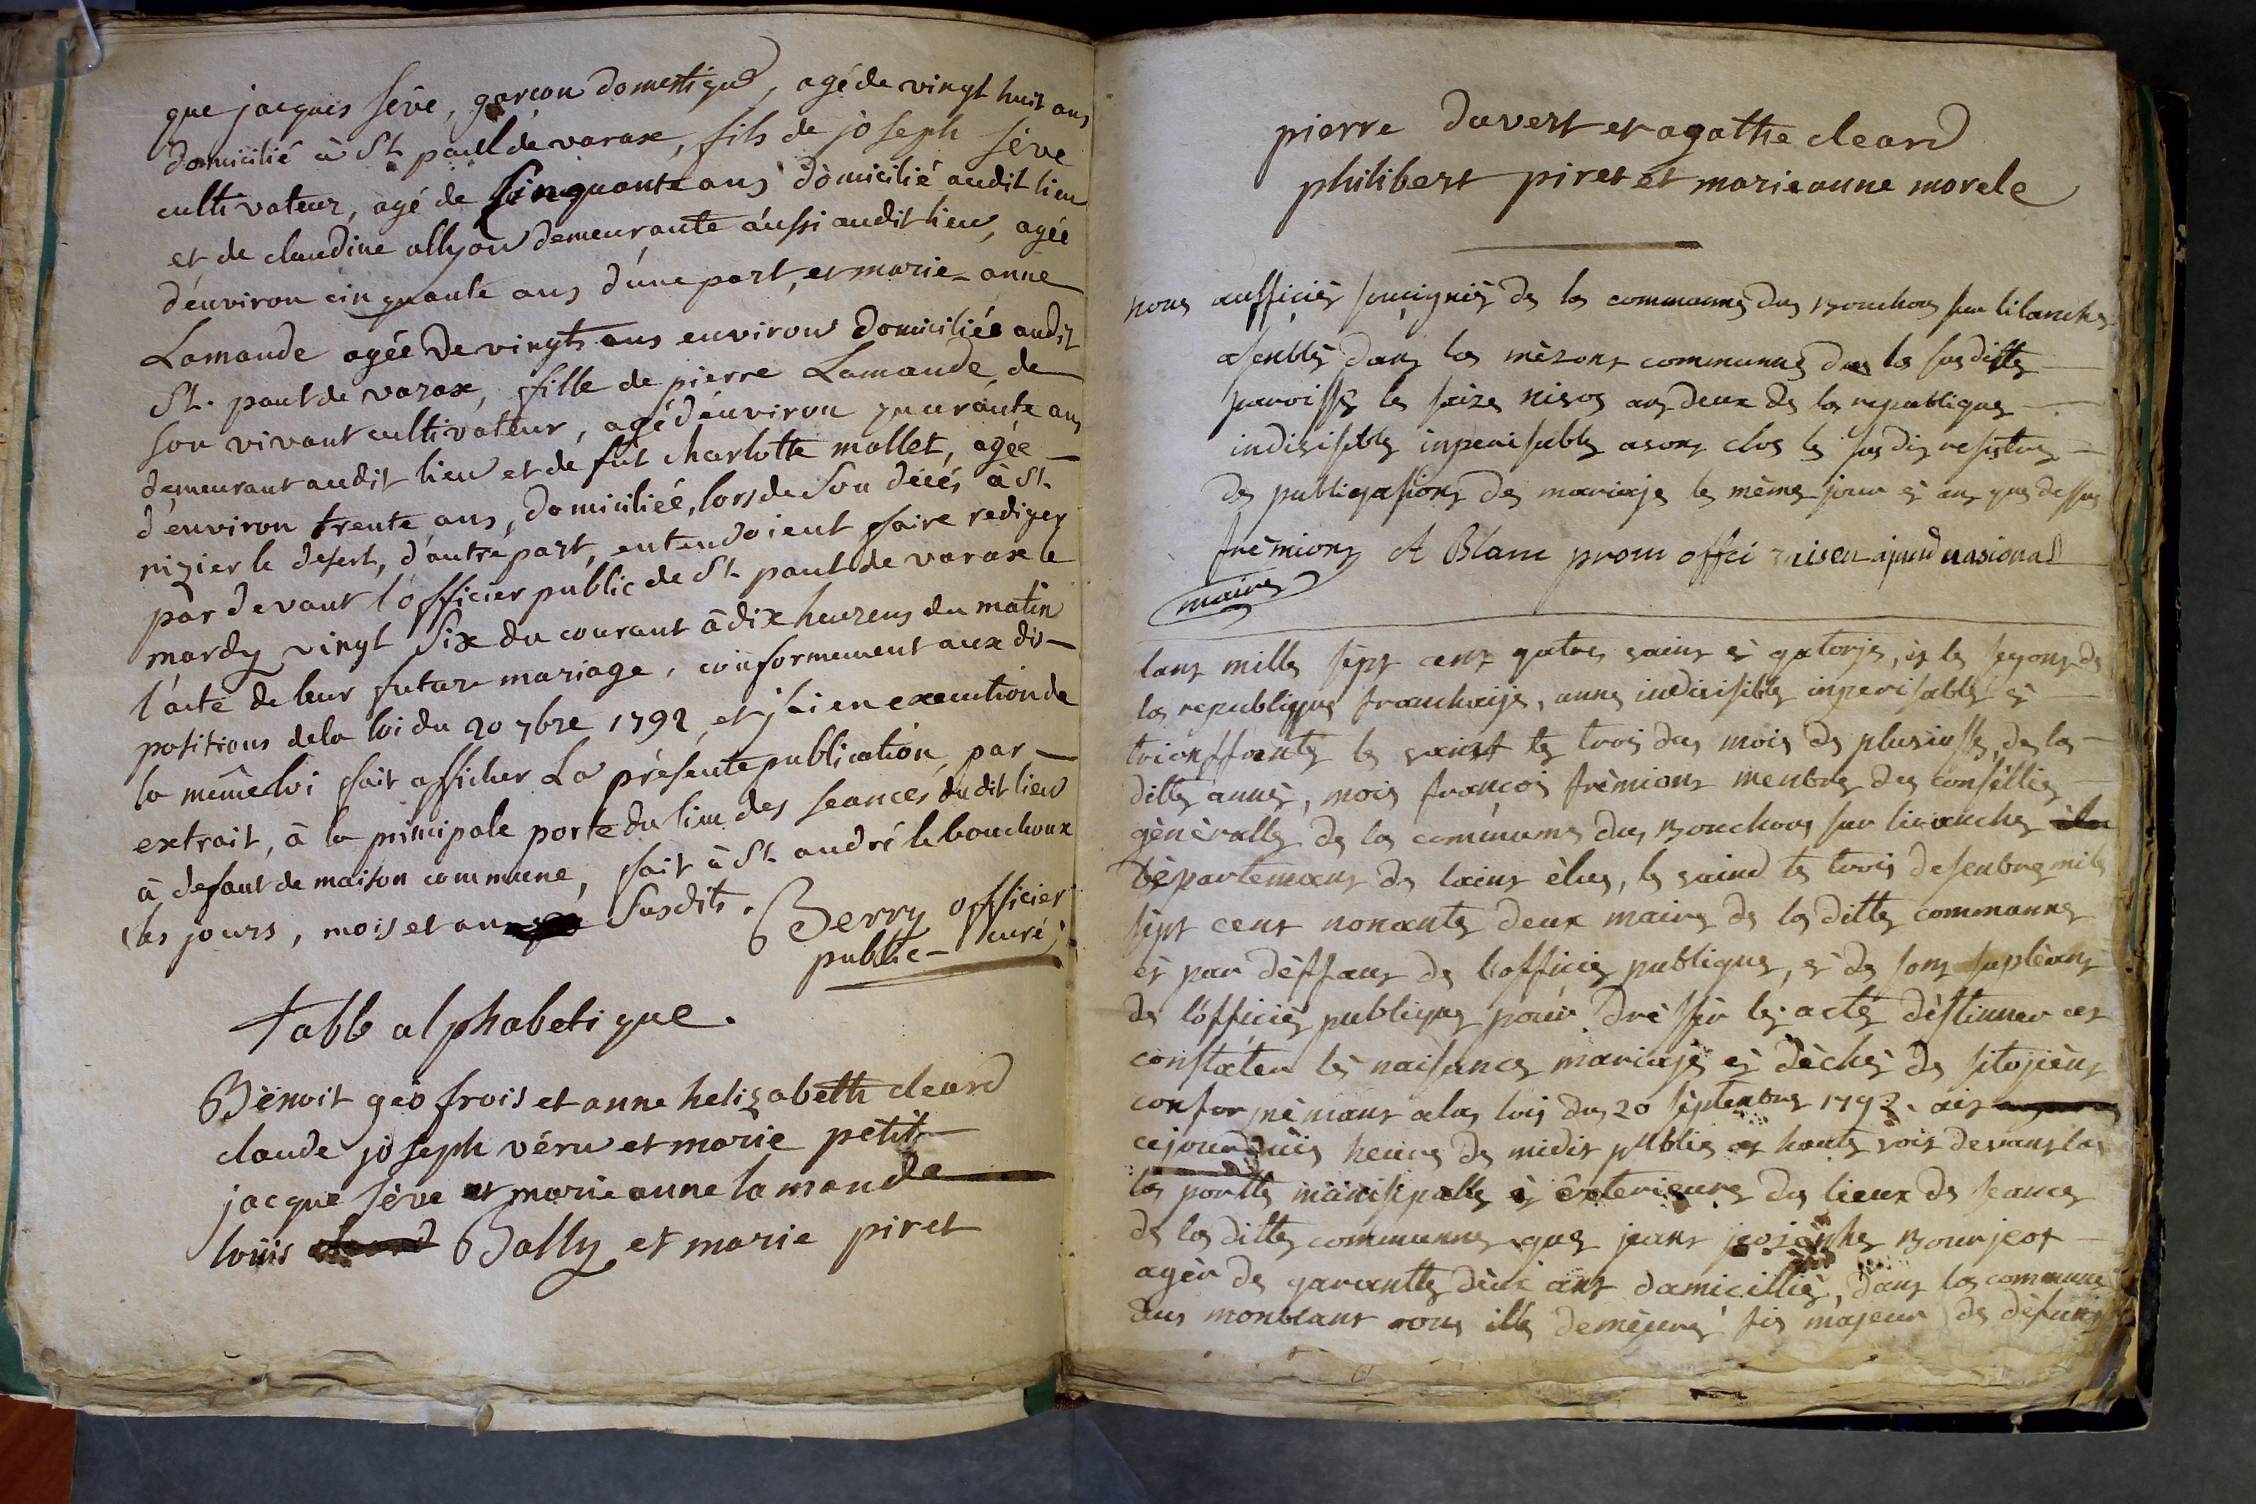 que jacques sêve, garcon domestique, agé de vingt huit ans
domicilié à St. paul de varax, fils de joseph sêve
cultivateur, agé de sinquante ans domicilié audit lieu
et de claudine allyon demeurante aussi audit lieu, agée
d'environ cinquante ans d'une part, et marie-anne
Lamande agée de vingts ans environ domiciliée audit
St. paul de varax, fille de pierre Lamande, de
son vivant cultivateur, agé d'environ quarante ans
demeurant audit lieu et de fut charlotte mollet, agée
d'environ trente ans, domiciliée, lors de son décés à St.
nizier le desert, d'autre part, entendoient faire rediger
par devant l'officier public de St. paul de varax le
mardy vingt six du courant à dix heurens du matin
l'acte de leur futur mariage, conformement aux dis-
positions de la loi du 20 7bre 1792, et j'ai en execution de
la même loi fait afficher La présente publication, par
extrait, à la principale porte du lieu des seances dudit lieu
à defaut de maison commune, fait à St. andré le bouchoux
les jours, mois et an susdits. Berry officier
public curé
table alphabetique.
Bènoit geofrois et anne helizabeth cleard
claude joseph véru et marie petit
jacque sève et marie anne lamande
louis Bally et marie piret
pierre duvert et agathe cleard
philibert piret et marie anne morele
nous aufficiès souçigniès de la communne dus Bouchous sur
asenblès dans las mèzons communne das la susditte
paroisse le saize nivos ans deux de la republique
indivisible inperisable avons clos le susdis resistre
de publiqasions de mariaje le même jour et ans que dessus
frèmions A Blanc prom offci ajand nasional
maire
lans mille sept cent quatre vaint et quatorje, et le segons de
la republique franchaije, anne indivisible inperisable et
trionffante le vaint te trois das mois de plusiosse, de la
ditte année, mois françois frèmions menbre des consellie
gènèralle de la communne das Bouchous sur
dèpartemans de lains èlus, le vaind te trois desenbre mile
sept cent nonante deux maire de la ditte communne
et par dèffaus de l'officie publique, et de sons suplèans
de l'officiès publique pour drèssèr les actes dèstinner as
constater lès naisance mariaje et dèchès de sitojièns
confor mèmans a las lois das 20 sèptenbre 1792. ais
cejourduis heure de midis publies as haute vois devans las
la portte mànisipalle et èxterieure das lieux de seance
de la ditte communne que jeans josèphe Bourjeot
agèr de garantte dèux ans damicilliè, dans la commune
dus montans fis majeur de dèfuns